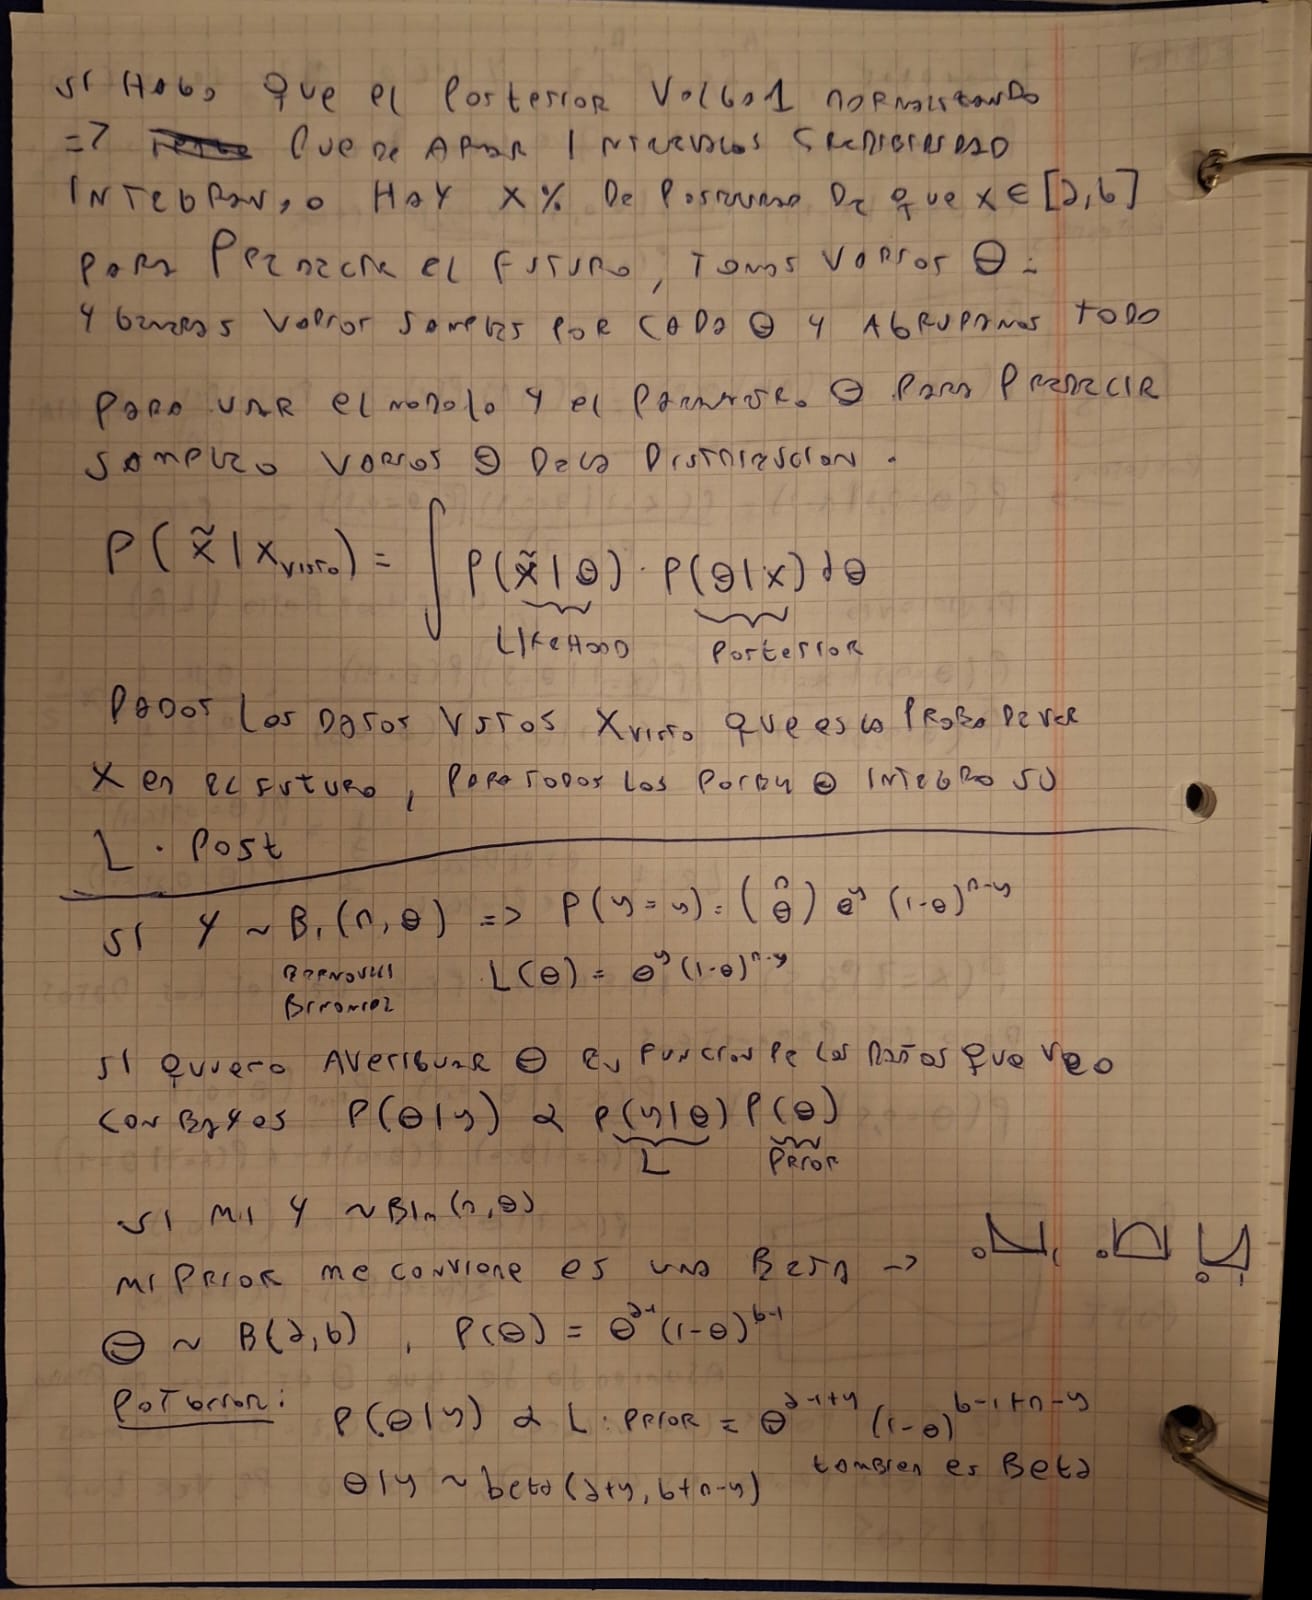 SI HAGO que el Posterior Valga 1 normalizando
=> Puede Armar Intervalos Credibilidad
Integrando Hay x% De De que x ∈ [a,b]
para Predecir el futuro, Tomas varios θ
y generas varios samples por cada θ y Agrupamos todo
para usar el modelo y el parametro θ para Predecir
sampleo varios θ De la Distribucion.
P(x̃ | x_visto) = ∫ P(x̃|θ) · P(θ|x) dθ
Likehood Posterior
Dados los datos vistos x_visto que es la Proba De ver
x en el futuro, para todos los θ integro su
L · Post
SI Y ~ Bi(n, θ) => P(y = y) = (n θ) θ^y (1-θ)^{n-y}
Bernoulli L(θ) = θ^y (1-θ)^{n-y}
Binomial
SI quiero Averiguar θ en funcion de los Datos que veo
con Bayes P(θ|y) α P(y|θ) P(θ)
L Prior
SI mi Y ~ Bin(n,θ)
mi Prior me conviene es una Beta ->
0 1 0 0
θ ~ B(a,b), P(θ) = θ^{a-1} (1-θ)^{b-1}
Posterior: P(θ|y) α L · Prior = θ^{a-1+y} (1-θ)^{b-1+n-y}
tambien es Beta
θ|y ~ beta(a+y, b+n-y)